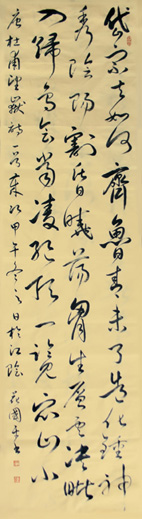 岱宗夫如何齊魯青未了造化鍾神
秀陰陽割昏曉蕩胸生層雲决眦
入歸鳥會當凌絕頂一覽衆山小
唐杜甫望嶽詩一首歲次甲午冬之日於江陰國書